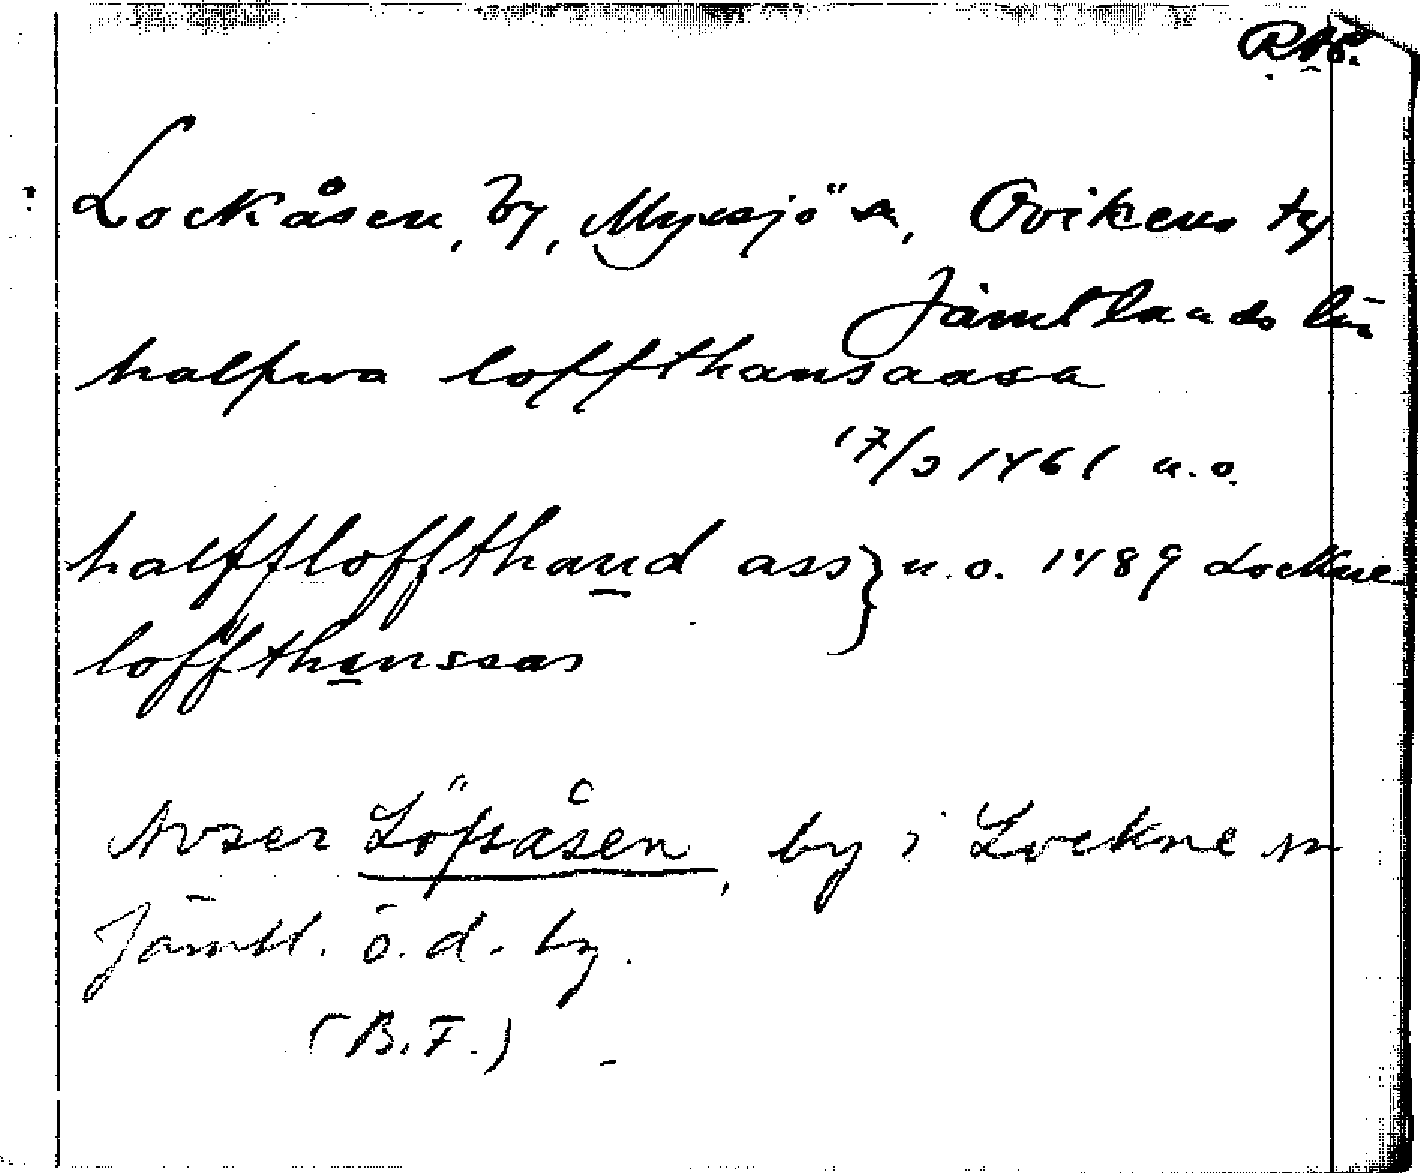 RAP.
Lockåsen, by, Myssjö sn, Ovikens tg
Jämtlands län
halfwa loffthansaasa
17/3 1461 u.o.
halfflofthand ass } u.o. 1489 Lockne
loffthanssas
Avser Löfsåsen, by i Lockne sn
Jämtl. ö.d. by.
(B.F.)